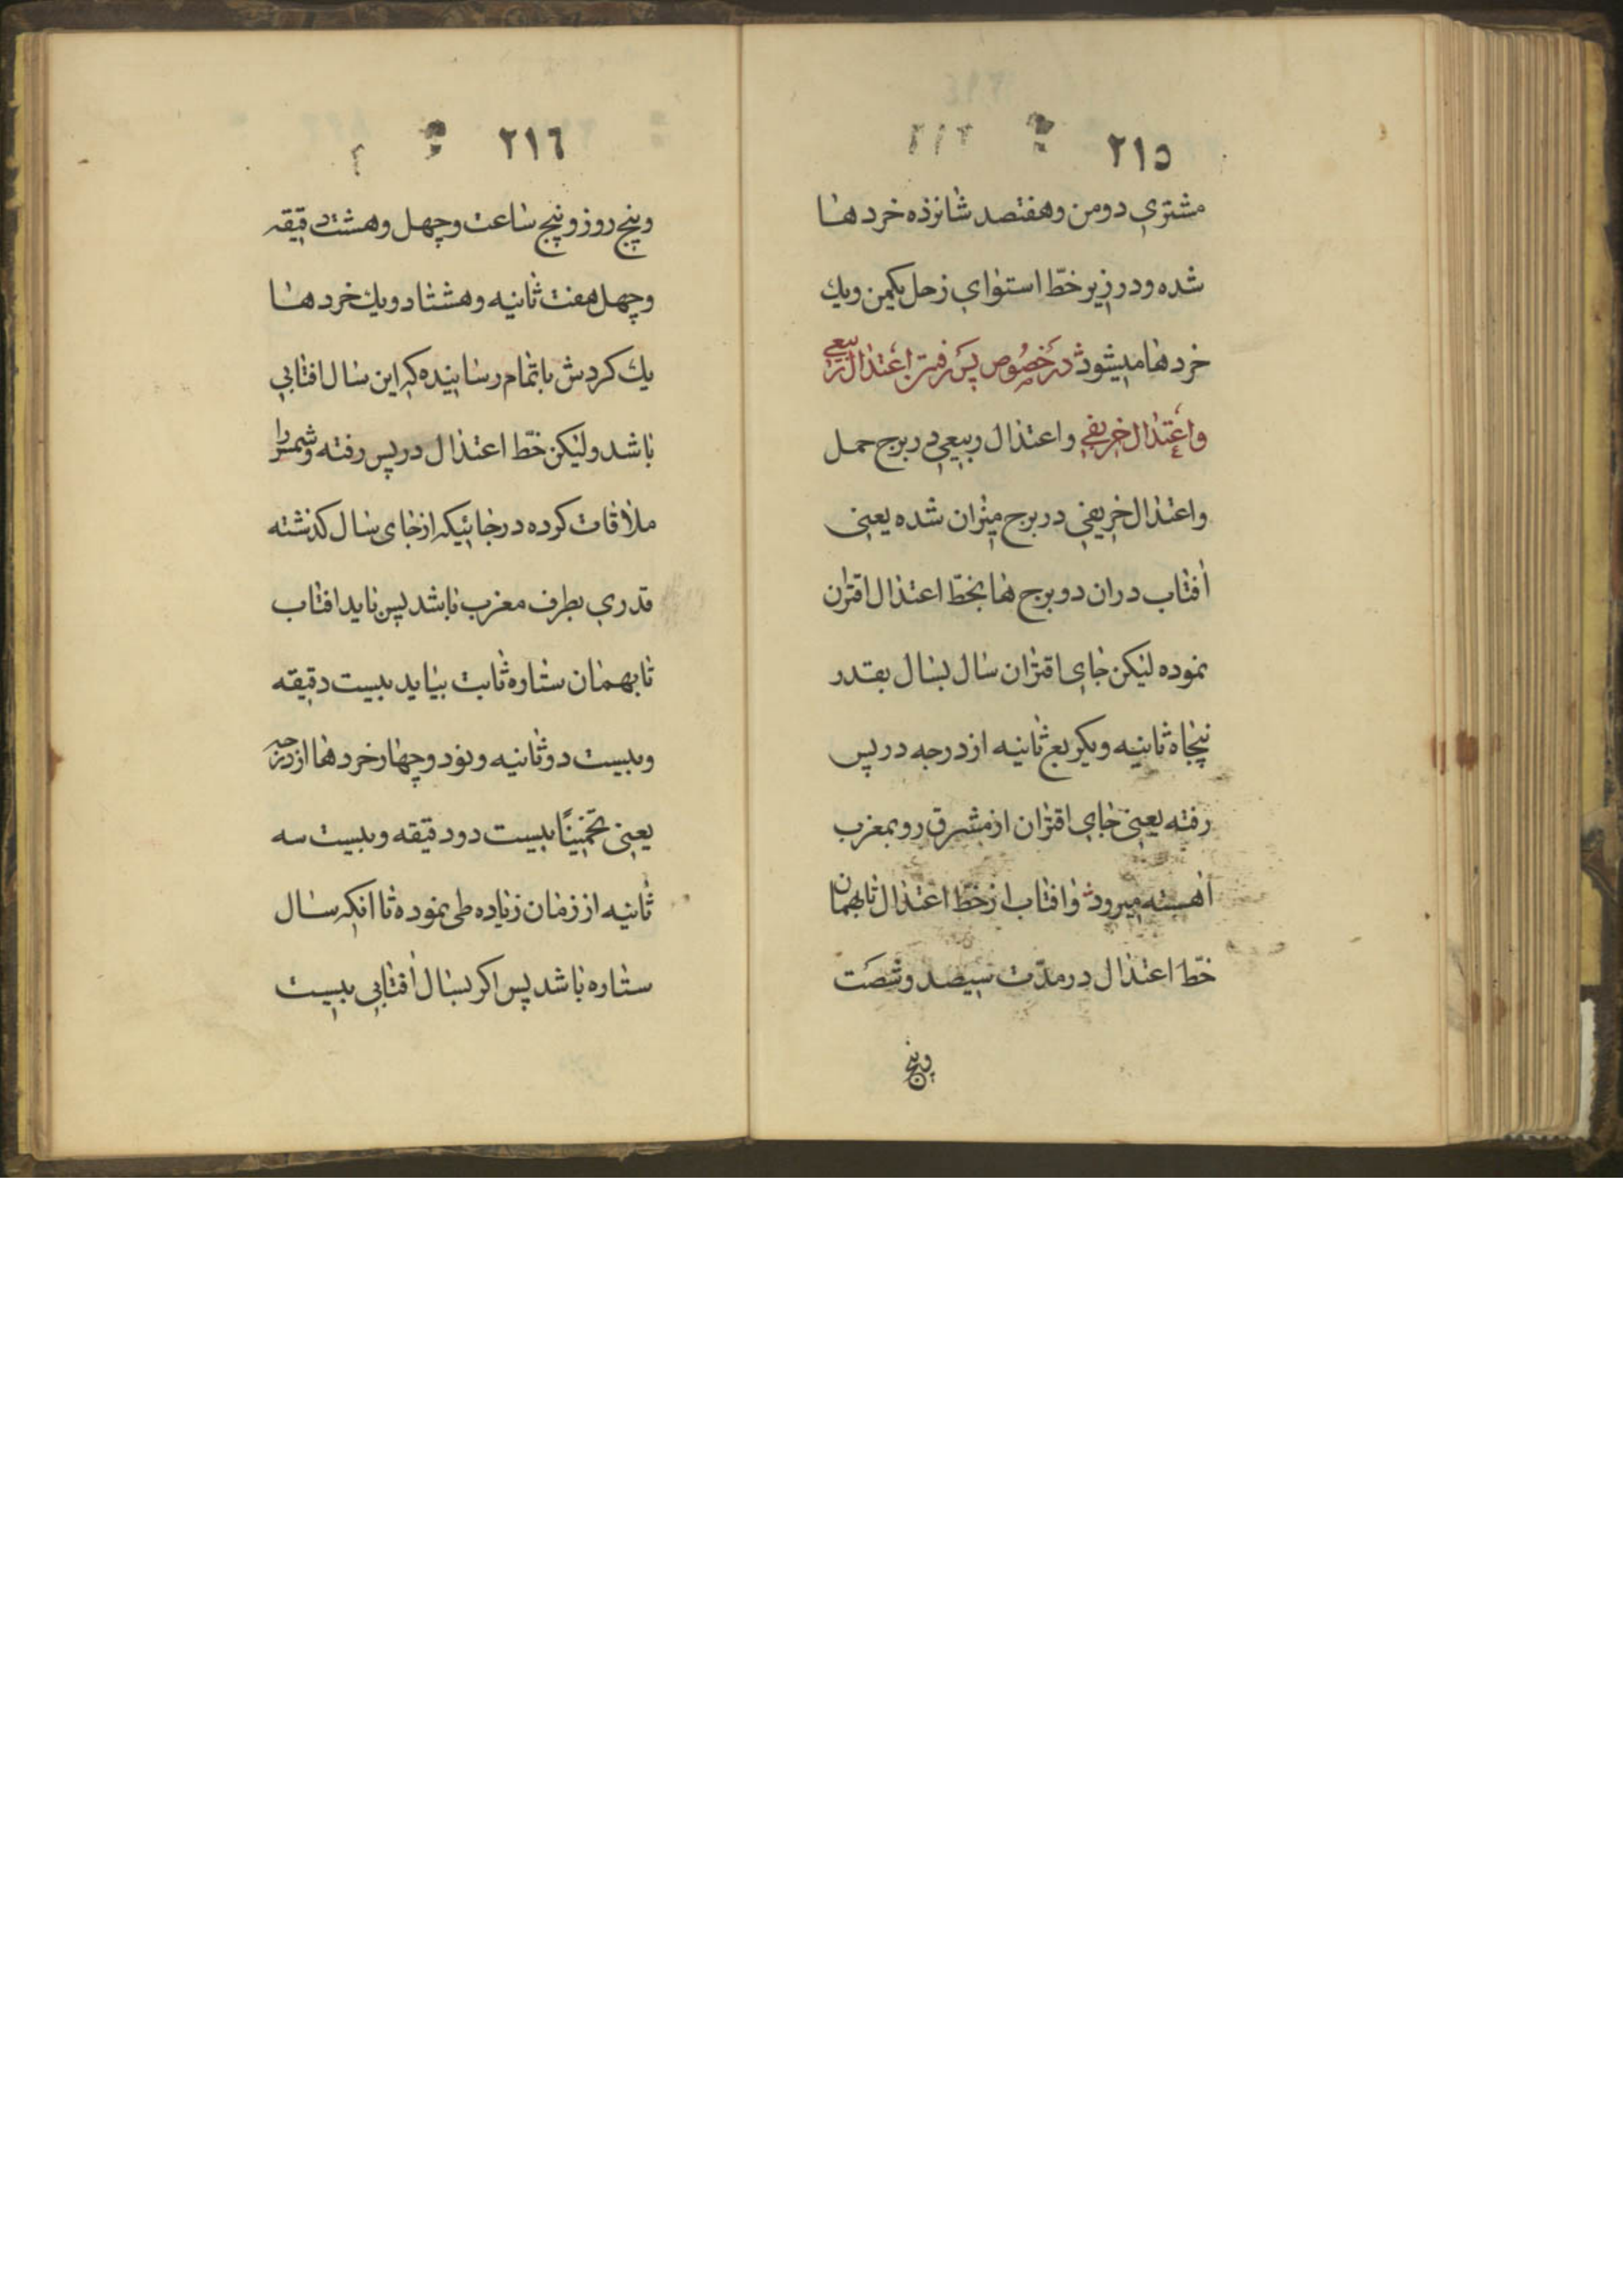 ٢١٥
مشتري دومن وهفتصد شانزده خردها
شده ودر زير خطّ استواي زحل يكمن ويك
خردها ميشود در خصوص پس رفتن اعتدال ربيعي
واعتدال خريفي واعتدال ربيعي در برج حمل
واعتدال خريفي در برج ميزان شده يعني
افتاب دران دو برج ها بخطّ اعتدال اقتران
نموده ليكن جاي اقتران سال بسال بقدر
پنجاه ثانيه ويكربع ثانيه از درجه در پس
رفته يعني جاي اقتران از مشرق رو بمغرب
اهسته ميرود وافتاب از خطّ اعتدال تا بهمان
خطّ اعتدال در مدّت سيصد وشصت
وپنج
٢١٦
وپنج روز وپنج ساعت وچهل وهشت دقيقه
وچهل هفت ثانيه وهشتاد ويك خردها
يك كردش باتمام رسانيده كه اين سال افتابي
باشد وليكن خطّ اعتدال در پس رفته وشمس را
ملاقات كرده در جائيكه از جاى سال كذشته
قدري بطرف مغرب باشد پس بايد افتاب
تا بهمان ستاره ثابت بيايد بيست دقيقه
وبيست دو ثانيه ونود وچهار خردها از درجه
يعني تخمينًا بيست دو دقيقه وبيست سه
ثانيه از زمان زياده طى نموده تا انكه سال
ستاره باشد پس اكر بسال افتابي بيست